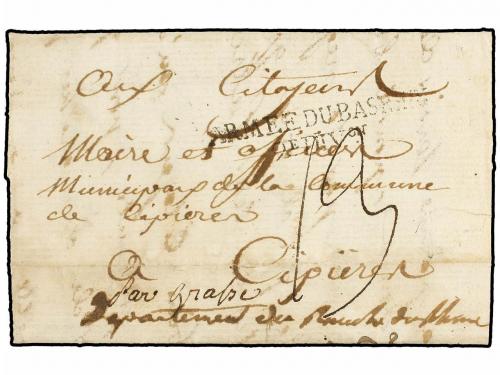 Aux Citoyens
ARMEE DU BAS RHIN
DIV ON
Maire et officiers
Municipaux de la Commune
de Cipieres
13
A Cipières
Par grasse
Departement du Bouche du Rhone